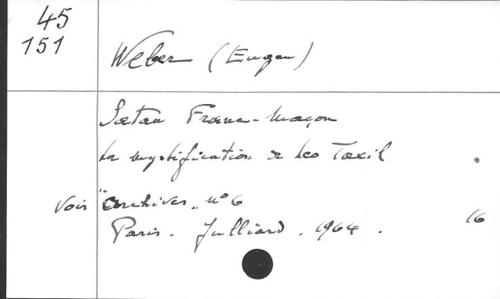 45
151
Weber (Eugen)
Satan Franc-Maçon
La mystification de Leo Taxil
Voir "Archives. n° 6
Paris. Julliard. 1964.
16